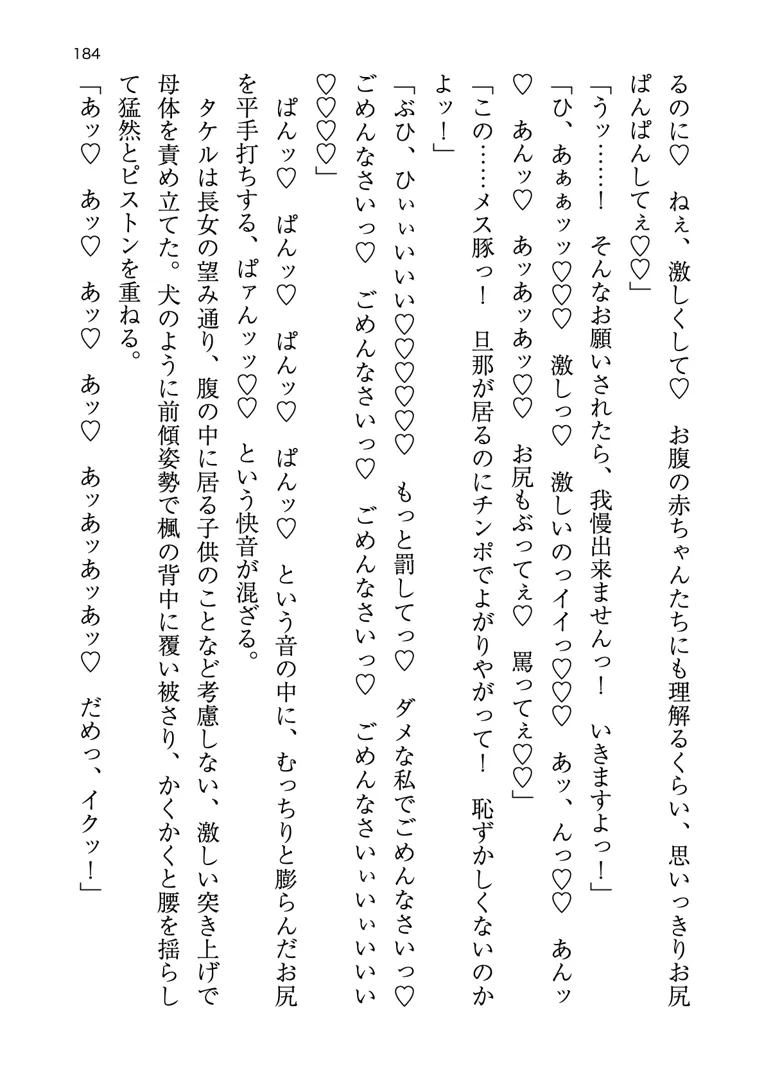 184
るのに♡　ねぇ、激しくして♡　お腹の赤ちゃんたちにも理解るくらい、思いっきりお尻
ぱんぱんしてぇ♡♡」
「うッ……！　そんなお願いされたら、我慢出来ませんっ！　いきますよっ！」
「ひ、あぁぁッッ♡♡♡　激しっ♡　激しいのっイイっ♡♡♡　あッ、んっ♡♡　あんッ
♡　あんッ♡　あッあッあッ♡♡　お尻もぶってぇ♡　罵ってぇ♡♡」
「この……メス豚っ！　旦那が居るのにチンポでよがりやがって！　恥ずかしくないのか
よッ！」
「ぶひ、ひぃぃいいい♡♡♡♡♡♡　もっと罰してっ♡　ダメな私でごめんなさいっ♡
ごめんなさいっ♡　ごめんなさいっ♡　ごめんなさいっ♡　ごめんなさいぃいぃいいい
♡♡♡♡」
　ぱんッ♡　ぱんッ♡　ぱんッ♡　ぱんッ♡　という音の中に、むっちりと膨らんだお尻
を平手打ちする、ぱァんッッ♡♡　という快音が混ざる。
　タケルは長女の望み通り、腹の中に居る子供のことなど考慮しない、激しい突き上げで
母体を責め立てた。犬のように前傾姿勢で楓の背中に覆い被さり、かくかくと腰を揺らし
て猛然とピストンを重ねる。
「あッ♡　あッ♡　あッ♡　あッ♡　あッあッあッあッ♡　だめっ、イクッ！」